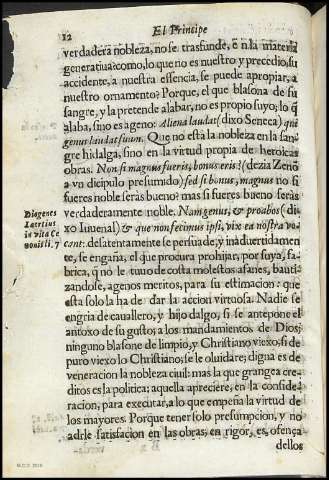 12 El Principe
verdadera nobleza, no se trasfunde, e n la materia
generatiua? como, lo que no es nuestro y precedio, su
accidente, a nuestra essencia, se puede apropiar, a
nuestro ornamento? Porque, el que blasona de su
sangre, y la pretende alabar, no es propio suyo, lo q̄
alaba, sino es ageno: Aliena laudat (dixo Seneca) qui
genus laudat suum. Que no està la nobleza en la san
gre hidalga, sino en la virtud propia de heroicas
obras. Non si magnus fueris, bonus eris? (dezia Zenō
a vn dicipulo presumido) sed si bonus, magnus no si
fueres noble seràs bueno? mas si fueres bueno seràs
verdaderamente noble. Nam genus, & proabos (di
xo Iuuenal) & que non fecimus ipsi, vix ea nostra vo-
cant: desatentamente se persuade, y inaduertidamen
te, se engaña, el que procura prohijar, por suya, fa-
brica, q̄ no le tuuo de costa molestos afanes, bauti
zandose, agenos meritos, para su estimacion: que
esta solo la ha de dar la accion virtuosa. Nadie se
engria de cauallero, y hijo dalgo, si se antepone el
antoxo de su gusto, a los mandamientos de Dios;
ninguno blasone de limpio, y Christiano viexo, si de
puro viexo lo Christiano, se le oluidare; digna es de
veneracion la nobleza ciuil: mas la que grangea cre-
ditos es la politica; aquella apreciere, en la conside
racion, para executar, a lo que empeña la virtud de
los mayores. Porque tener solo presumpcion, y no
darle satisfacion en las obras, en rigor, es, ofença
dellos
Diogenes
Laertius
in vita Ce
nonis li. 7